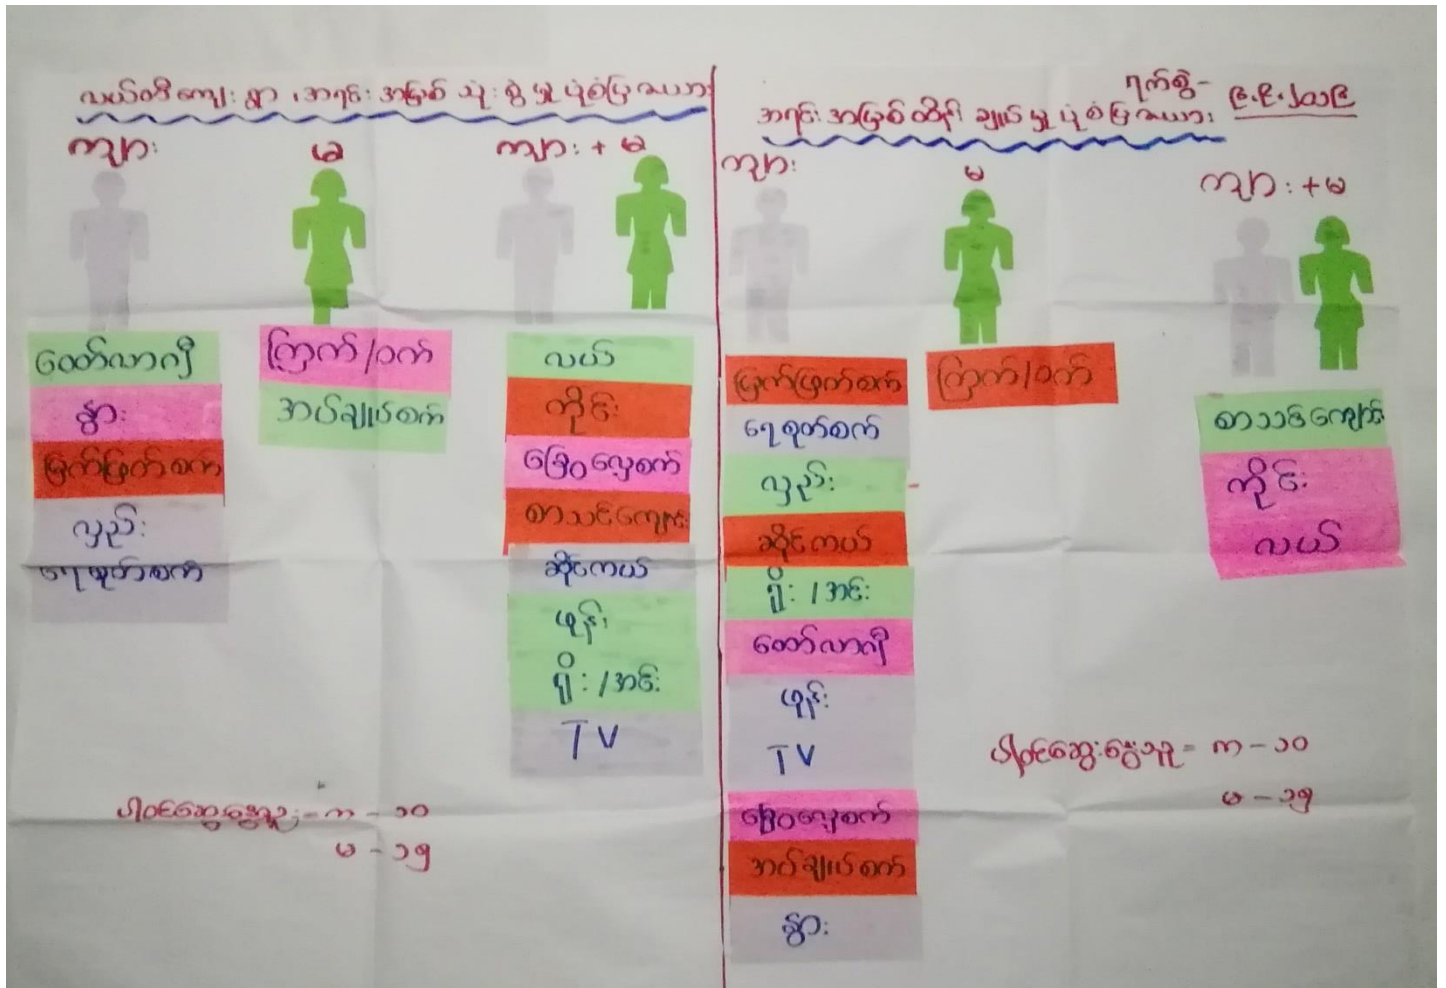 လယ်တီကျေးရွာ ၊ အရင်းအမြစ် သုံးစွဲမှုပုံစံပြဇယား
ကျား
မ
ကျား + မ
ထော်လာဂျီ
နွား
မြက်ဖြတ်စက်
လှည်း
ရေစုတ်စက်
ကြက်/ဝက်
အပ်ချုပ်စက်
လယ်
ကိုင်း
ခြွေလှေ့စက်
စာသင်ကျောင်း
ဆိုင်ကယ်
ဖုန်း
ရှိုး/အင်း
TV
ပါဝင်ဆွေးနွေးသူ = က - ၁၀
မ - ၁၅
ရက်စွဲ- ၉.၉.၂၀၁၉
အရင်းအမြစ်ထိန်းချုပ်မှုပုံစံပြဇယား
ကျား
မ
ကျား + မ
မြက်ဖြတ်စက်
ရေစုတ်စက်
လှည်း
ဆိုင်ကယ်
ရှိုး/အင်း
ထော်လာဂျီ
ဖုန်း
TV
ခြွေလှေ့စက်
အပ်ချုပ်စက်
နွား
ကြက်/ဝက်
စာသင်ကျောင်း
ကိုင်း
လယ်
ပါဝင်ဆွေးနွေးသူ = က - ၁၀
မ - ၁၅